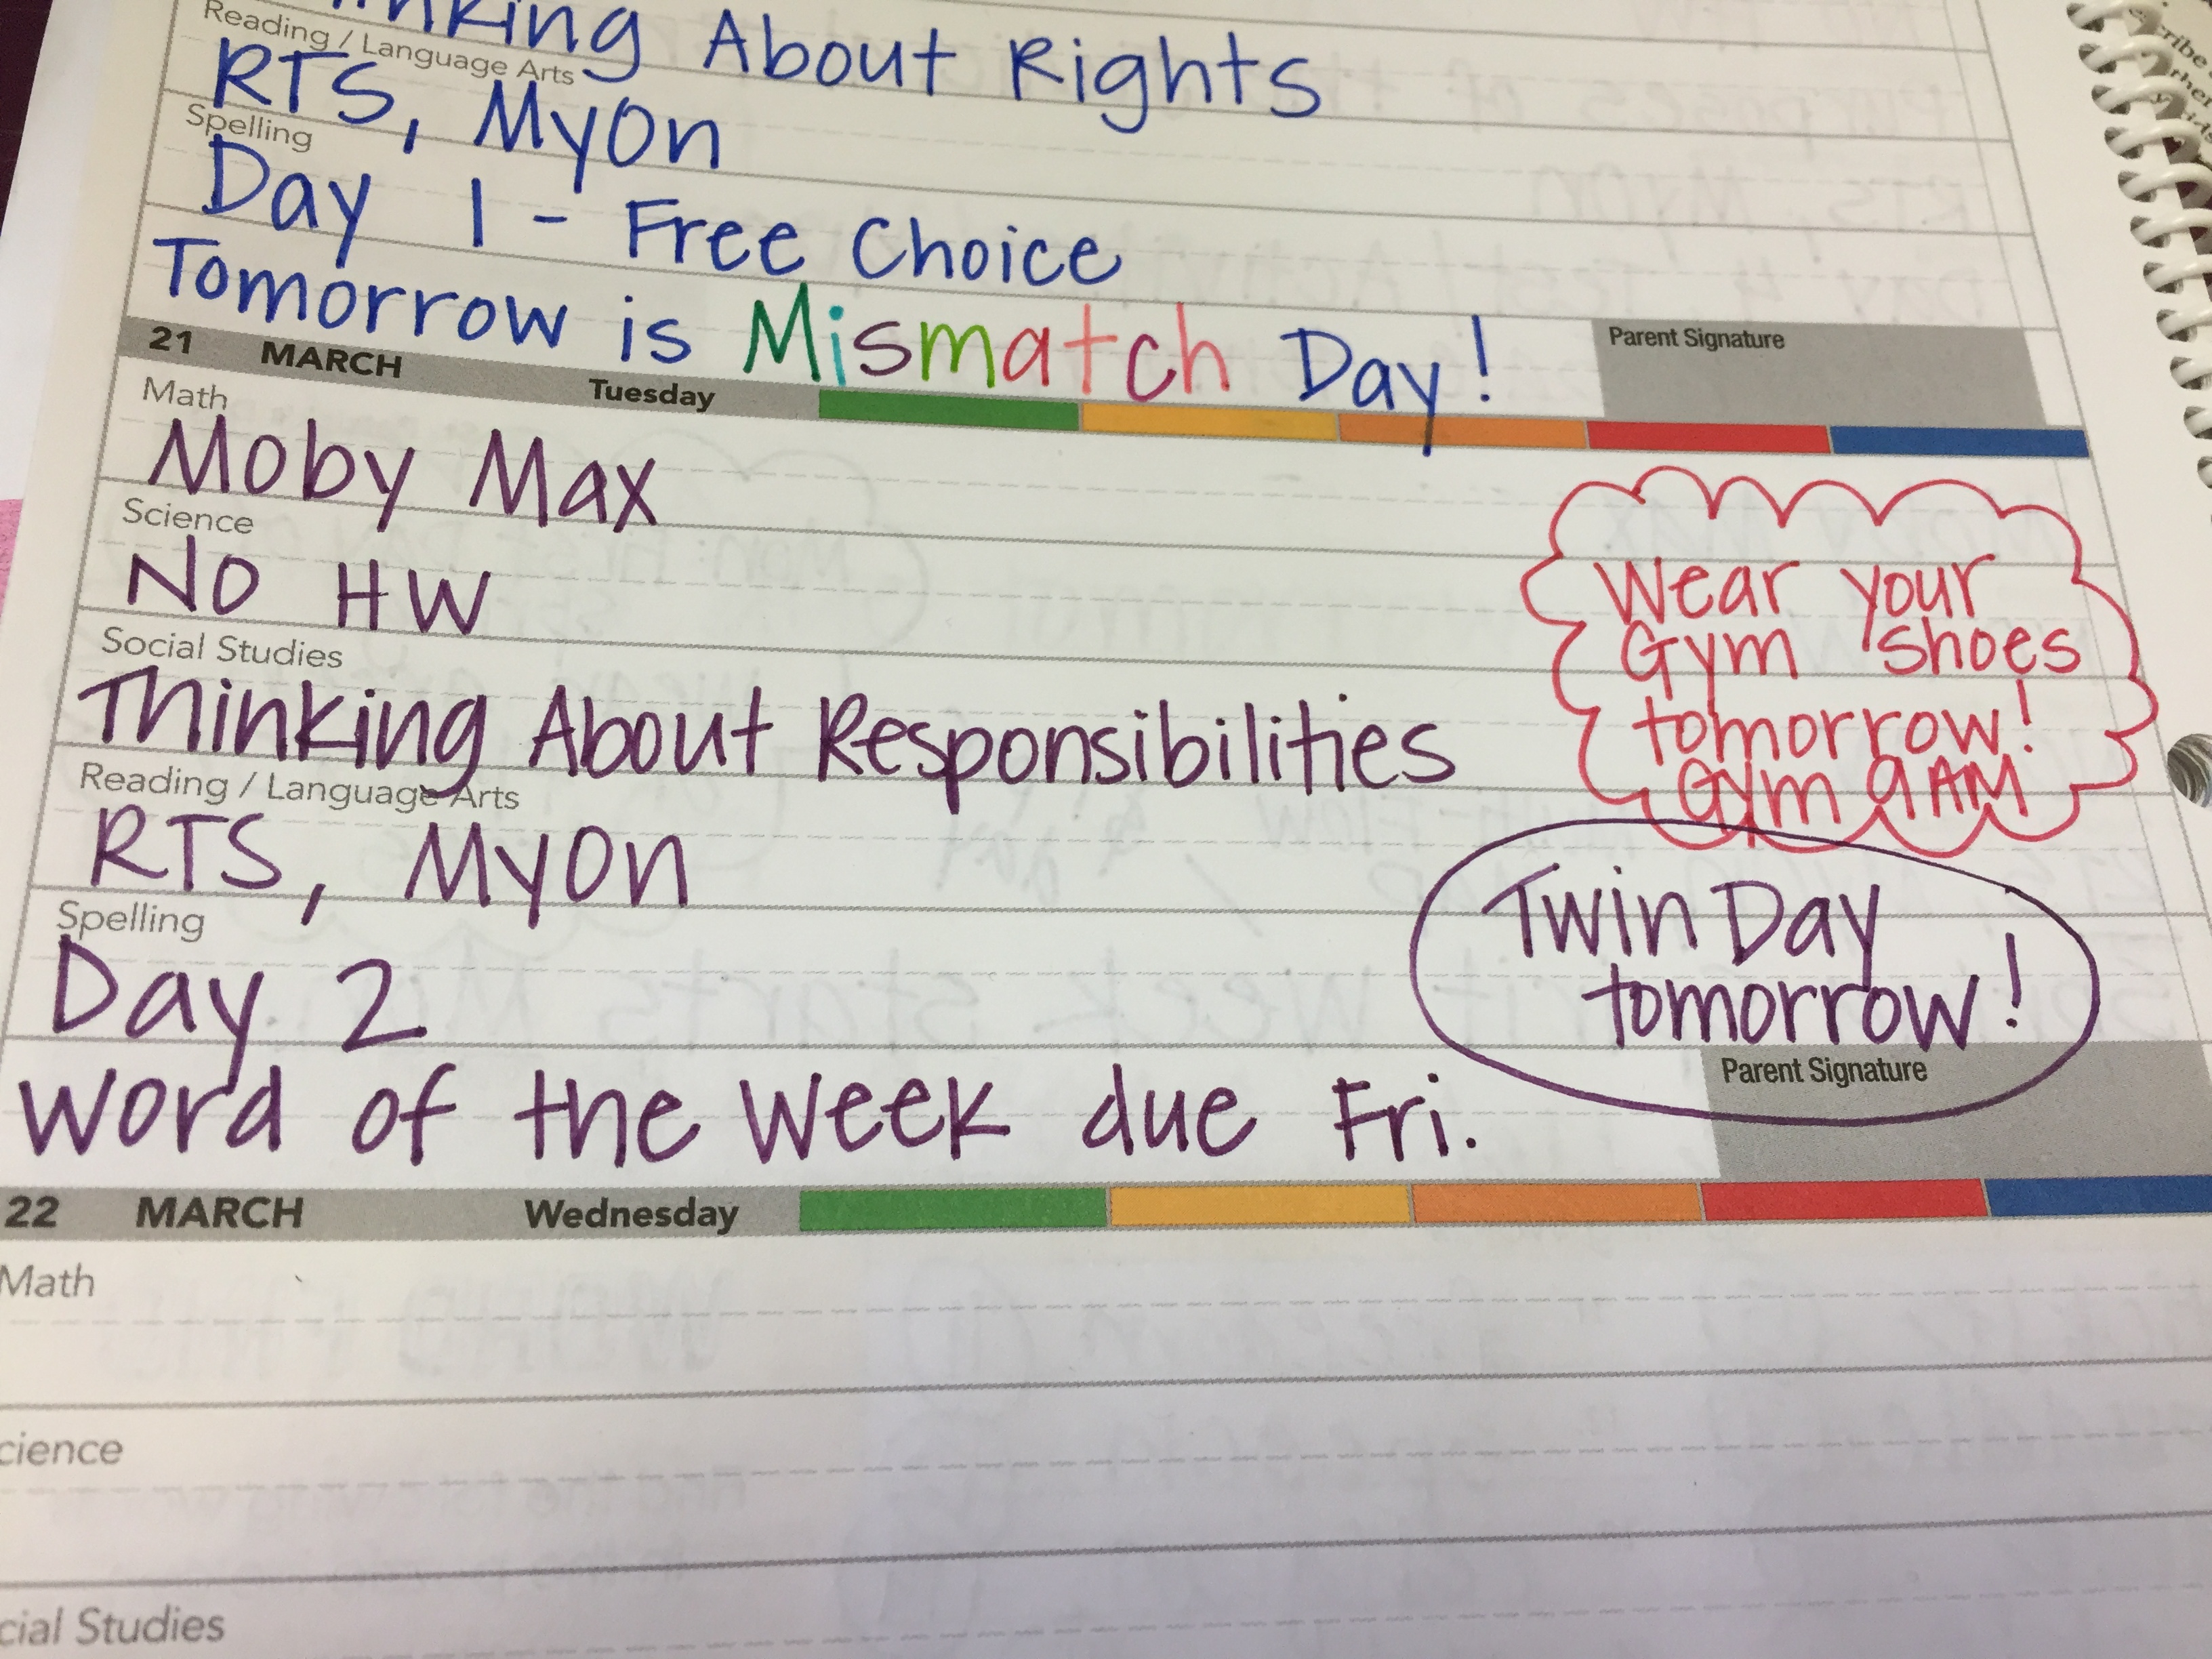 Reading / Language Arts
About Rights
RTS, MyOn
Spelling
Day 1 - Free Choice
Tomorrow is Mismatch Day!
Parent Signature
21 MARCH Tuesday
Math
Moby Max
Science
No HW
Social Studies
Thinking About Responsibilities
Wear your
Gym shoes
tomorrow!
Gym 9 AM
Reading / Language Arts
RTS, MyOn
Spelling
Day 2
Twin Day
tomorrow!
Parent Signature
Word of the Week due Fri.
22 MARCH Wednesday
Math
cience
cial Studies